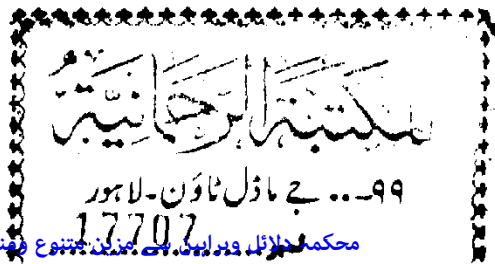 المكتبة الرحمانية
۹۹... جے ماڈل ٹاؤن۔ لاہور
نمبر 17707
محکمہ دلائل وبراہین سے مزین متنوع ومن